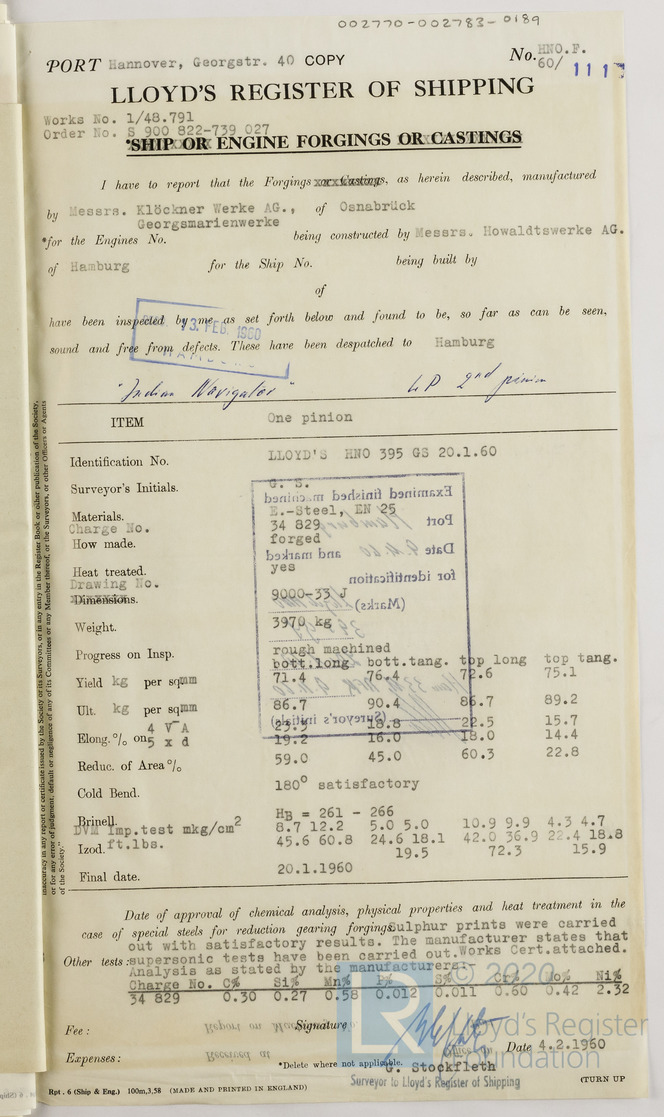 002770-002783-0189
PORT Hannover, Georgstr. 40 COPY No. HNO.F. 60/ 111
LLOYD'S REGISTER OF SHIPPING
Works No. 1/48.791
Order No. S 900 822-739 027
*SHIP OR ENGINE FORGINGS OR CASTINGS
I have to report that the Forgings or Castings, as herein described, manufactured
by Messrs. Klöckner Werke AG., of Osnabrück
Georgsmarienwerke
*for the Engines No. being constructed by Messrs. Howaldtswerke AG.
of Hamburg for the Ship No. being built by
of
have been inspected by me as set forth below and found to be, so far as can be seen,
13. FEB. 1960
sound and free from defects. These have been despatched to Hamburg
"Indian Navigator" LP 2nd pinion
ITEM One pinion
Identification No. LLOYD'S HNO 395 GS 20.1.60
Surveyor's Initials. G. S.
Examined finished machined
Materials. E.-Steel, EN 25
Port Hamburg
Charge No. 34 829
How made. forged
Date and marked
Heat treated. yes
for identification
Drawing No. 9000-33 J
Dimensions.
(Marks)
Weight. 3970 kg
Progress on Insp. rough machined
bott.long bott.tang. top long top tang.
Yield kg per sqmm 71.4 76.4 72.6 75.1
Ult. kg per sqmm 86.7 90.4 86.7 89.2
(Surveyor's initials)
Elong. % on 4 √A 23.5 18.8 22.5 15.7
5 x d 19.2 16.0 18.0 14.4
Reduc. of Area % 59.0 45.0 60.3 22.8
Cold Bend. 180° satisfactory
Brinell. HB = 261 - 266
DVM Imp.test mkg/cm2 8.7 12.2 5.0 5.0 10.9 9.9 4.3 4.7
Izod. ft.lbs. 45.6 60.8 24.6 18.1 42.0 36.9 22.4 18.8
19.5 72.3 15.9
Final date. 20.1.1960
inaccuracy in any report or certificate issued by the Society or its Surveyors, or in any entry in the Register Book or other publication of the Society,
or for any error of judgment, default or negligence of any of its Committees or any Member thereof, or the Surveyors, or other Officers or Agents
of the Society."
Date of approval of chemical analysis, physical properties and heat treatment in the
case of special steels for reduction gearing forgings Sulphur prints were carried
out with satisfactory results. The manufacturer states that
Other tests: supersonic tests have been carried out. Works Cert.attached.
Analysis as stated by the manufacturers:-
Charge No. C% Si% Mn% P% S% Cr% Mo% Ni%
34 829 0.30 0.27 0.58 0.012 0.011 0.60 0.42 2.32
© 2020
LR Lloyd's Register
Foundation
Fee: Signature
Report on
Date 4.2.1960
Expenses: Received at
*Delete where not applicable. G. Stockfleth
Surveyor to Lloyd's Register of Shipping
Rpt. 6 (Ship & Eng.) 100m,3,58 (MADE AND PRINTED IN ENGLAND) (TURN UP